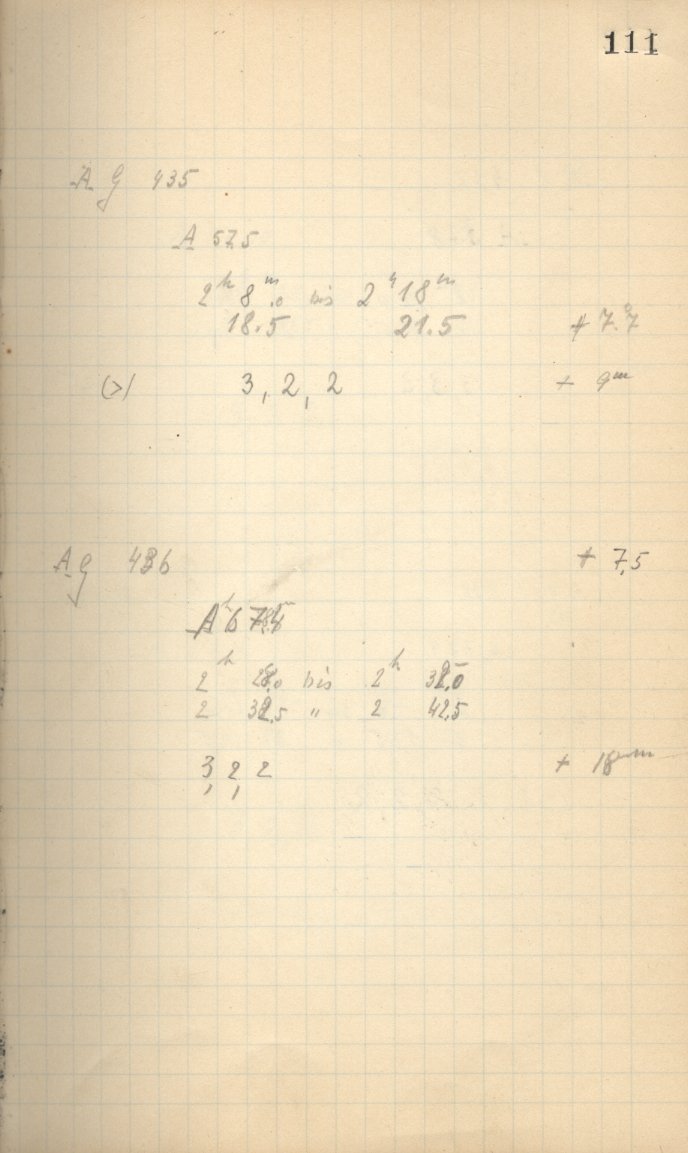 111
A G 435
A 57,5
2ʰ 8ᵐ,0 bis 2ʰ 18ᵐ
18.5 21.5 + 7.7
(>) 3, 2, 2 + 9ᵐ
A G 436 + 7,5
A
2ʰ 28,0 bis 2ʰ 32,0
2 32,5 " 2 42,5
3, 2, 2 + 18ᵐ